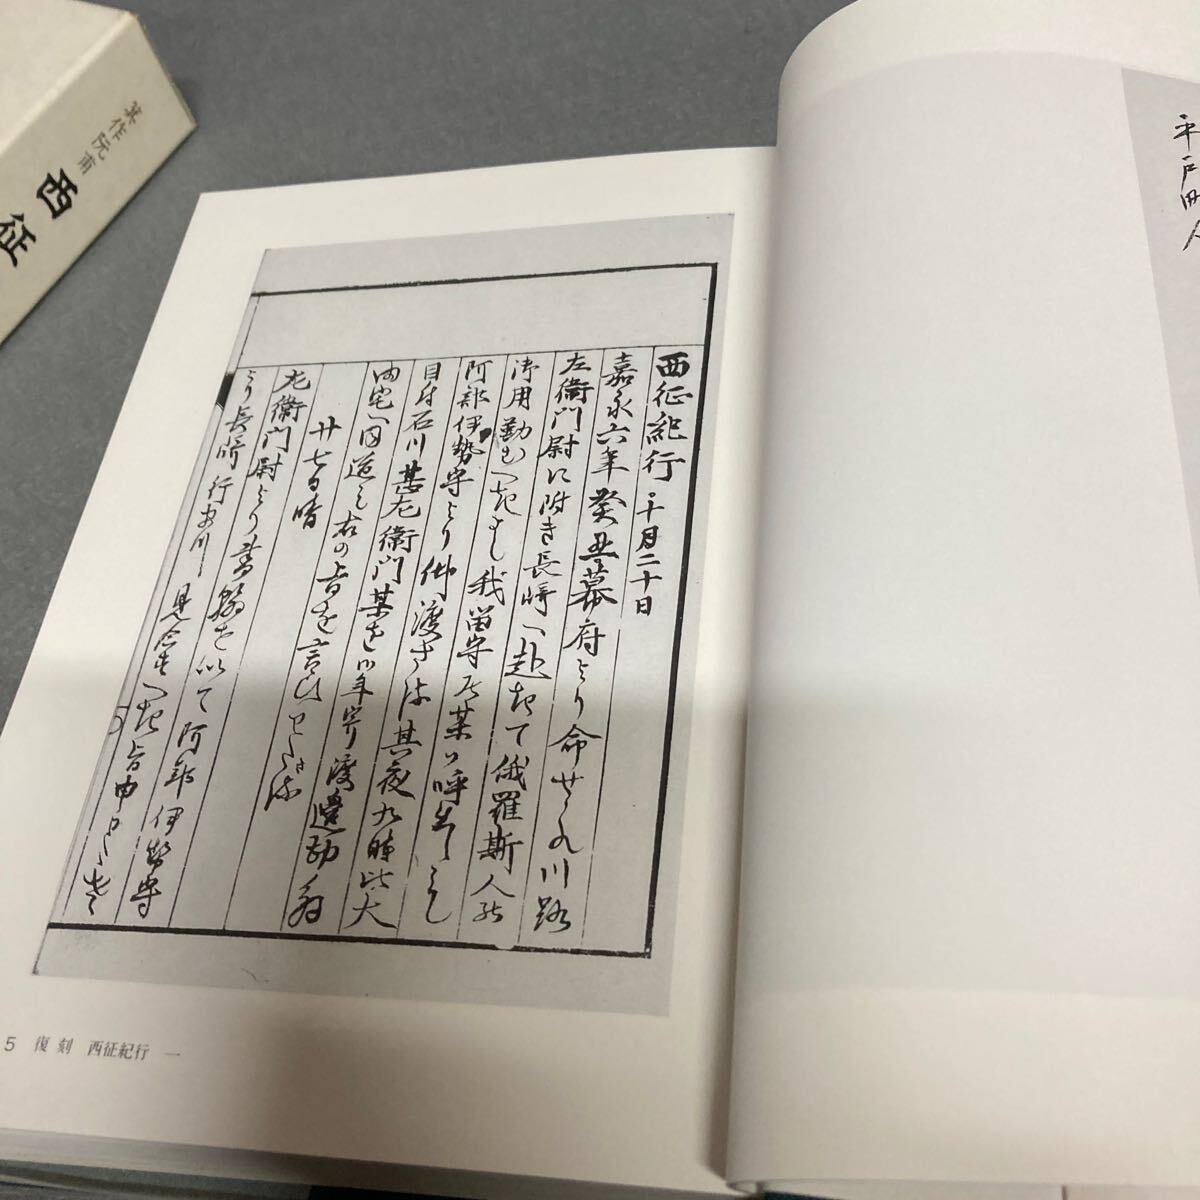 西征紀行 十月二十日
嘉永六年癸丑幕府より命せられ川路
左衛門尉に附き長崎へ赴きて俄羅斯人の
御用勤むへきよし我留守居某か呼出し
阿部伊勢守より仰渡さる其夜九時比大
目付石川甚左衛門某を以年寄渡邊
内宅へ同道し右の旨を言ひ
廿七日晴
左衛門尉より書翰を以て阿部伊勢守
より長崎行
5 復刻 西征紀行 一
箕作阮甫
西征
平戸